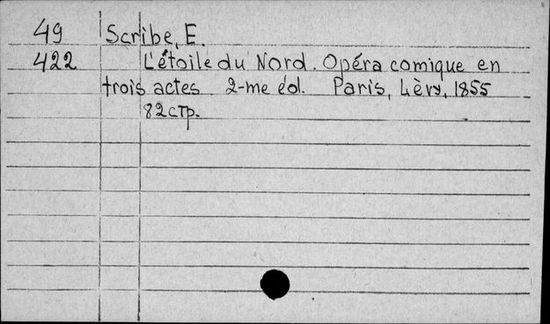 49 Scribe, E.
422 L'étoile du Nord. Opéra comique en
trois actes 2-me éd. Paris, Lèvy, 1855
82 стр.